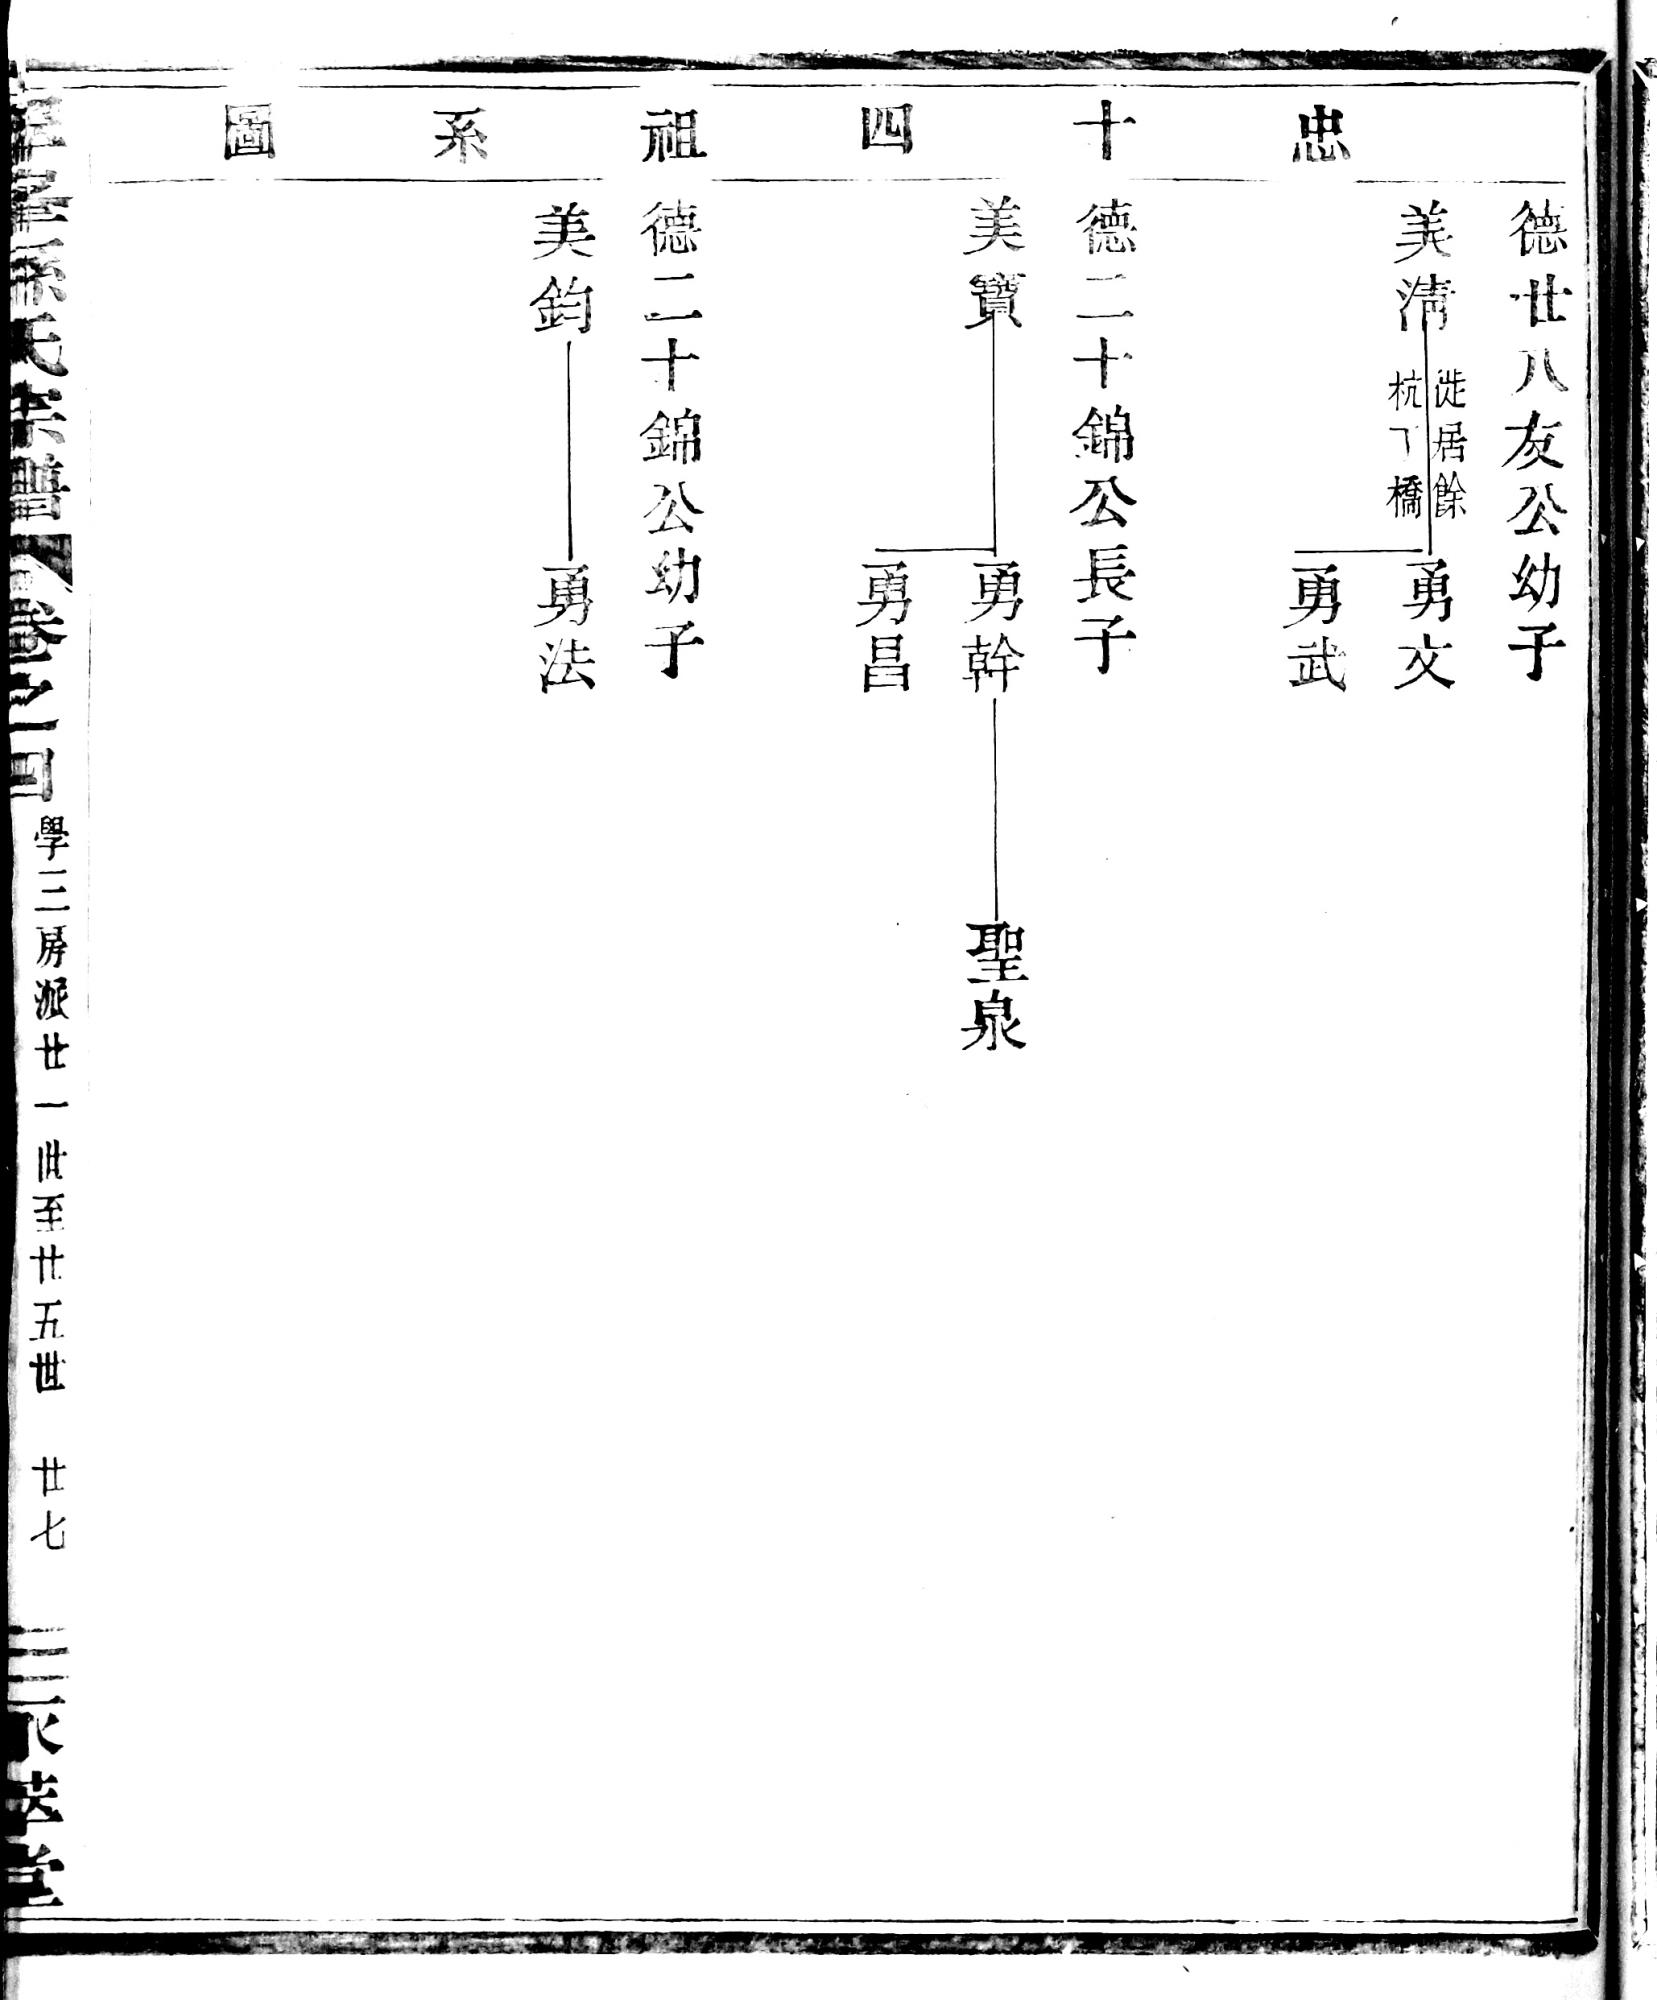 忠十四祖系圖
德廿八友公幼子
美淸
徙居餘
杭丁橋
勇文
勇武
德二十錦公長子
美寶
勇幹
聖泉
勇昌
德二十錦公幼子
美鈞
勇法
孫氏宗譜
卷之四
學三房派廿一世至廿五世
廿七
萃堂